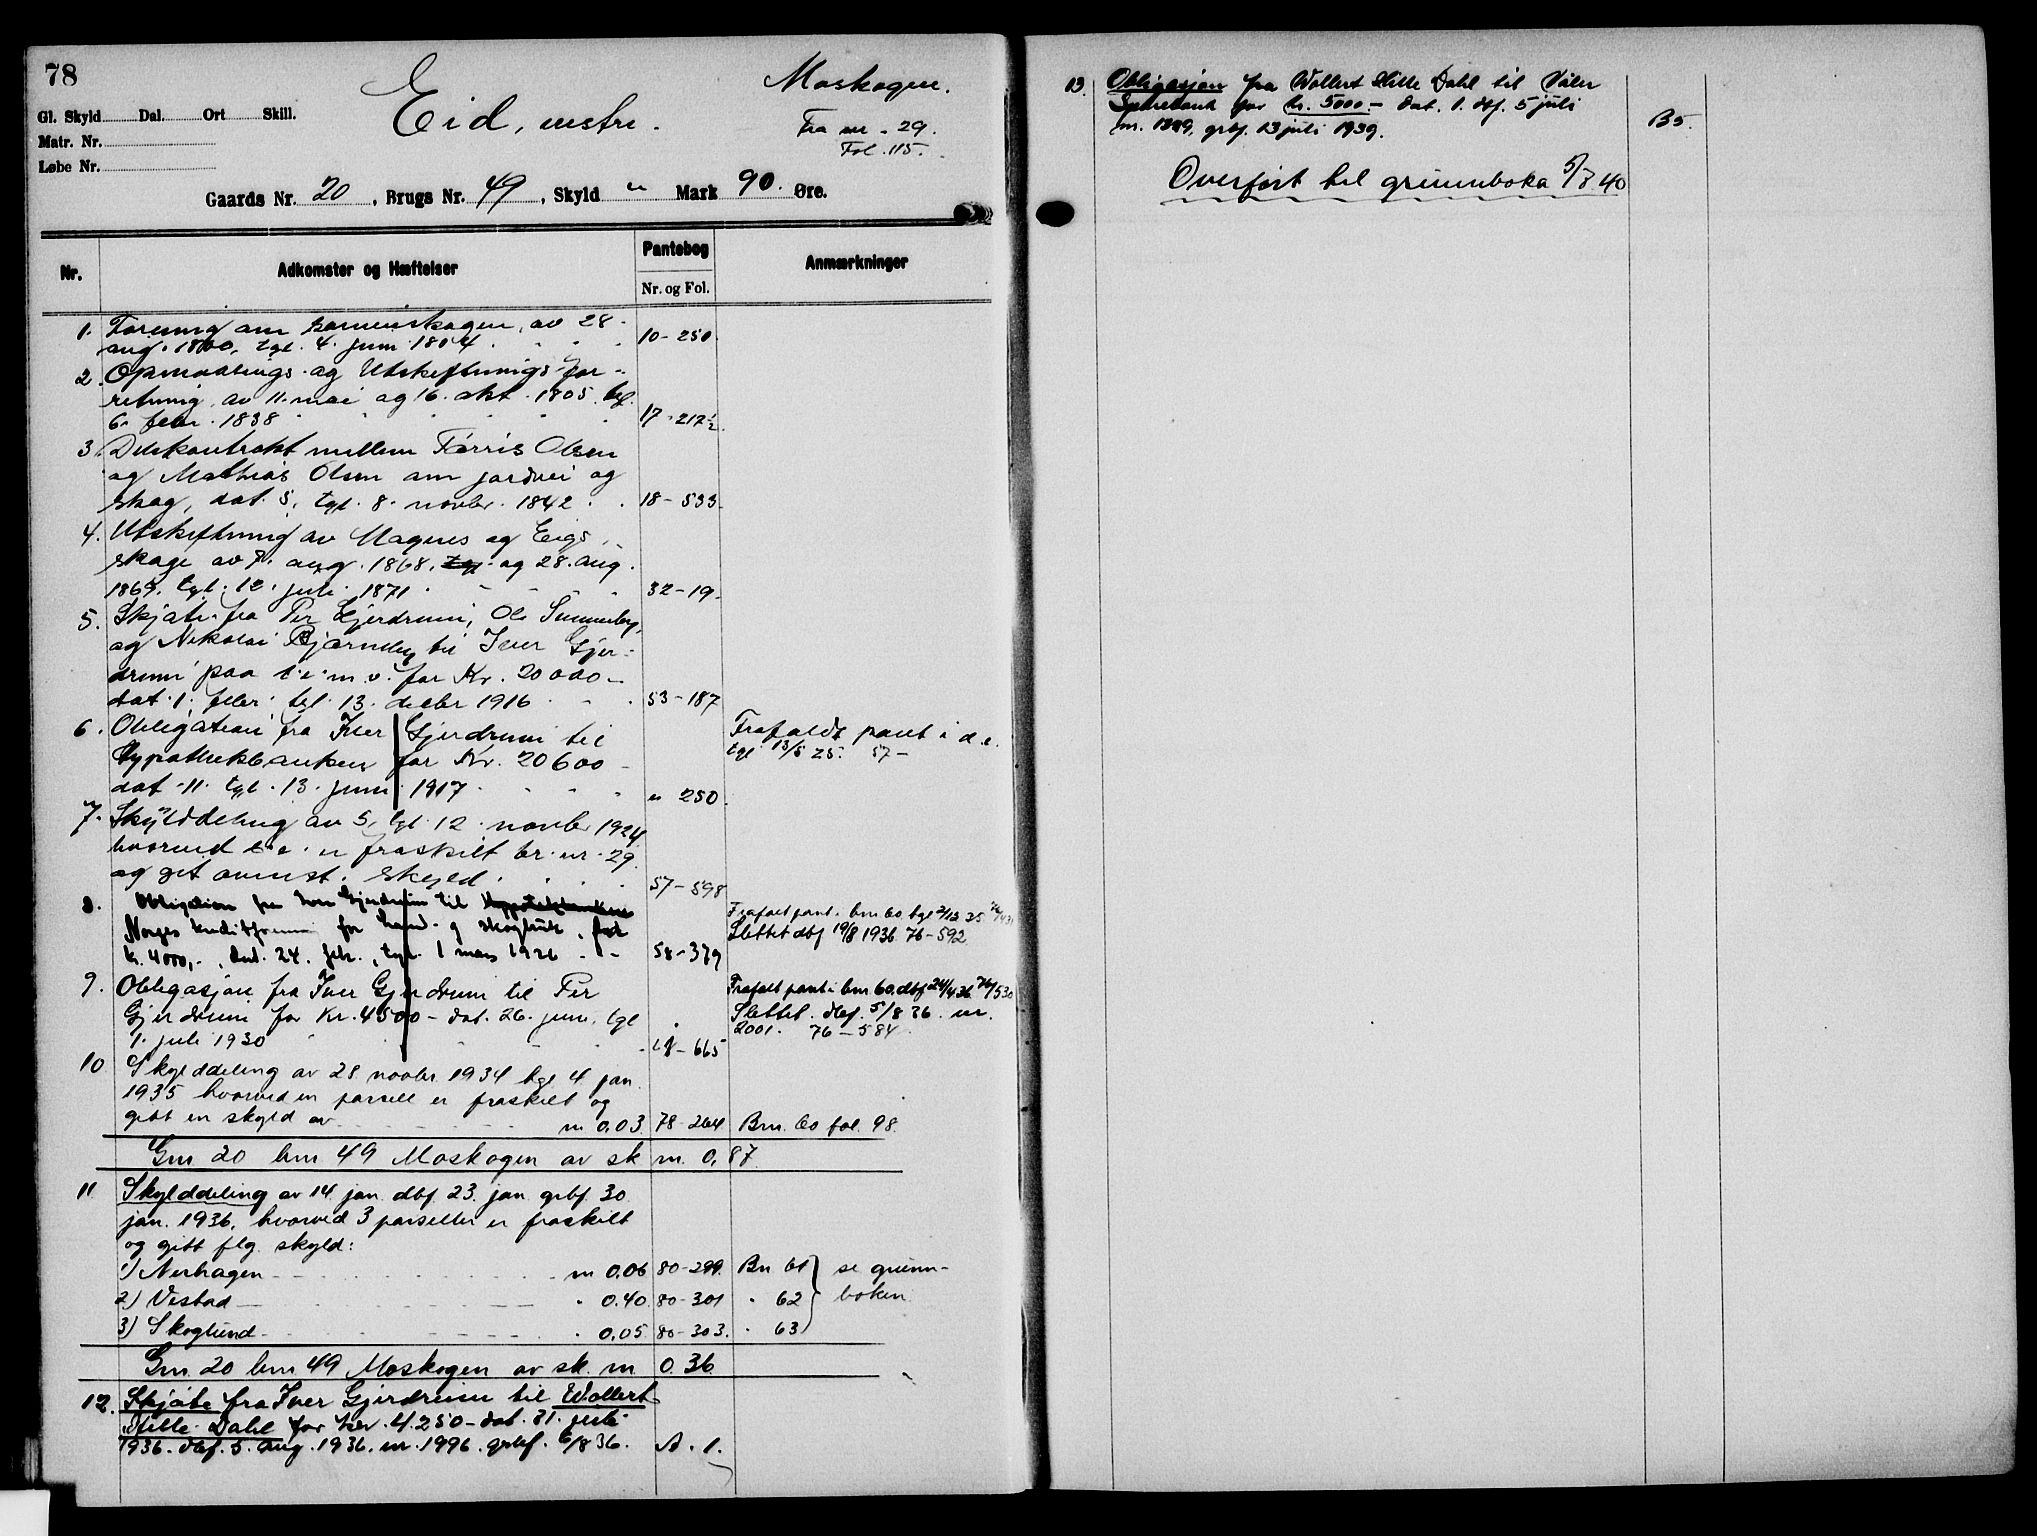 78
Gl. Skyld Dal. Ort Skill.
Matr. Nr.
Løbe Nr.
Eid, vestre.
Moskogen.
Fra nr. 29.
Fol. 115.
Gaards Nr. 20, Brugs Nr. 49, Skyld " Mark 90. Øre.
Nr. Adkomster og Hæftelser Pantebog Anmærkninger
Nr. og Fol.
1. Forening om skogen, av 28.
aug. 1800, tgl. 4. juni 1804. 10-250.
2. Opmaalings og Utskiftnings for-
retning av 11. mai og 16. okt. 1805. tgl.
6. febr. 1838 17-217½.
3. Delekontrakt mellem Førris Olsen
og Mathias Olsen om jordvei og
skog, dat. 5, tgl. 8. novbr. 1842. 18-533.
4. Utskiftning av Magnes og Eigs
skoge av 8. aug. 1868, tgl. og 28. aug.
1869, tgl. 12. juli 1871 32-19.
5. Skjøte fra Per Gjerdrum, Ole
og Nikolai til Iver Gjer-
drum paa d.e. m.v. for Kr. 20000-
dat. 1. febr. tgl. 13. decbr 1916 53-187
6. Obligation fra Iver Gjerdrum til
Hypothekbanken for Kr. 20600-
dat. 11. tgl. 13. juni 1917. " 250.
Frafaldt pant i d.e.
tgl 13/5 25. 57-
7. Skylddeling av 5, tgl. 12. novbr 1924
hvorved d.e. er fraskilt br. nr. 29.
og git anmst. skyld. 57-598
8. Obligation fra Iver Gjerdrum til Hypotekbanken
Norges kreditforening for land- og skogbruk, for
kr. 4000,-, dat. 24. febr., tgl. 1 mars 1926 58-379
Frafalt pant i bnr 60 tgl 2/12 35
Slettet dbf 19/8 1936 76-592
9. Obligasjon fra Iver Gjerdrum til Per
Gjerdrum for Kr. 4500- dat. 26. juni, tgl
1. juli 1930 -665
Frafalt pant i bnr 60. dbf 24/4 36 76/530
Slettet. dbf. 5/8 36. nr.
2001. 76-584.
10 Skylddeling av 28 novbr. 1934 tgl 4 jan.
1935 hvorved en parsell er fraskilt og
gitt en skyld av m 0,03. 78-264 Bnr. 60 fol. 98.
Gnr 20 bnr 49 Moskogen av sk m. 0,87.
11 Skylddeling av 14 jan. dbf. 23. jan. grbf. 30.
jan. 1936, hvorved 3 parseller er fraskilt
og gitt flg. skyld:
1) Nerhagen m 0.06 80-299. Bn 61 } se grunn-
2) Vestad " 0.40 80-301 " 62 } boken
3) Skoglund " 0,05 80-303. " 63
Gnr. 20 bnr 49 Moskogen av sk. m 0.36
12. Skjøte fra Iver Gjerdrum til Wollert
Hille Dahl for kr. 4.250- dat. 31. juli
1936. dbf. 5. aug. 1936. nr. 1996. grbf. 6/8 36. A. 1.
13. Obligasjon fra Wollert Hille Dahl til Våler
Sparebank for kr. 5000.- dat. 1. dbf. 5 juli
nr. 1399, grbf. 13 juli 1939. B5.
Overført til grunnboka 5/8 40